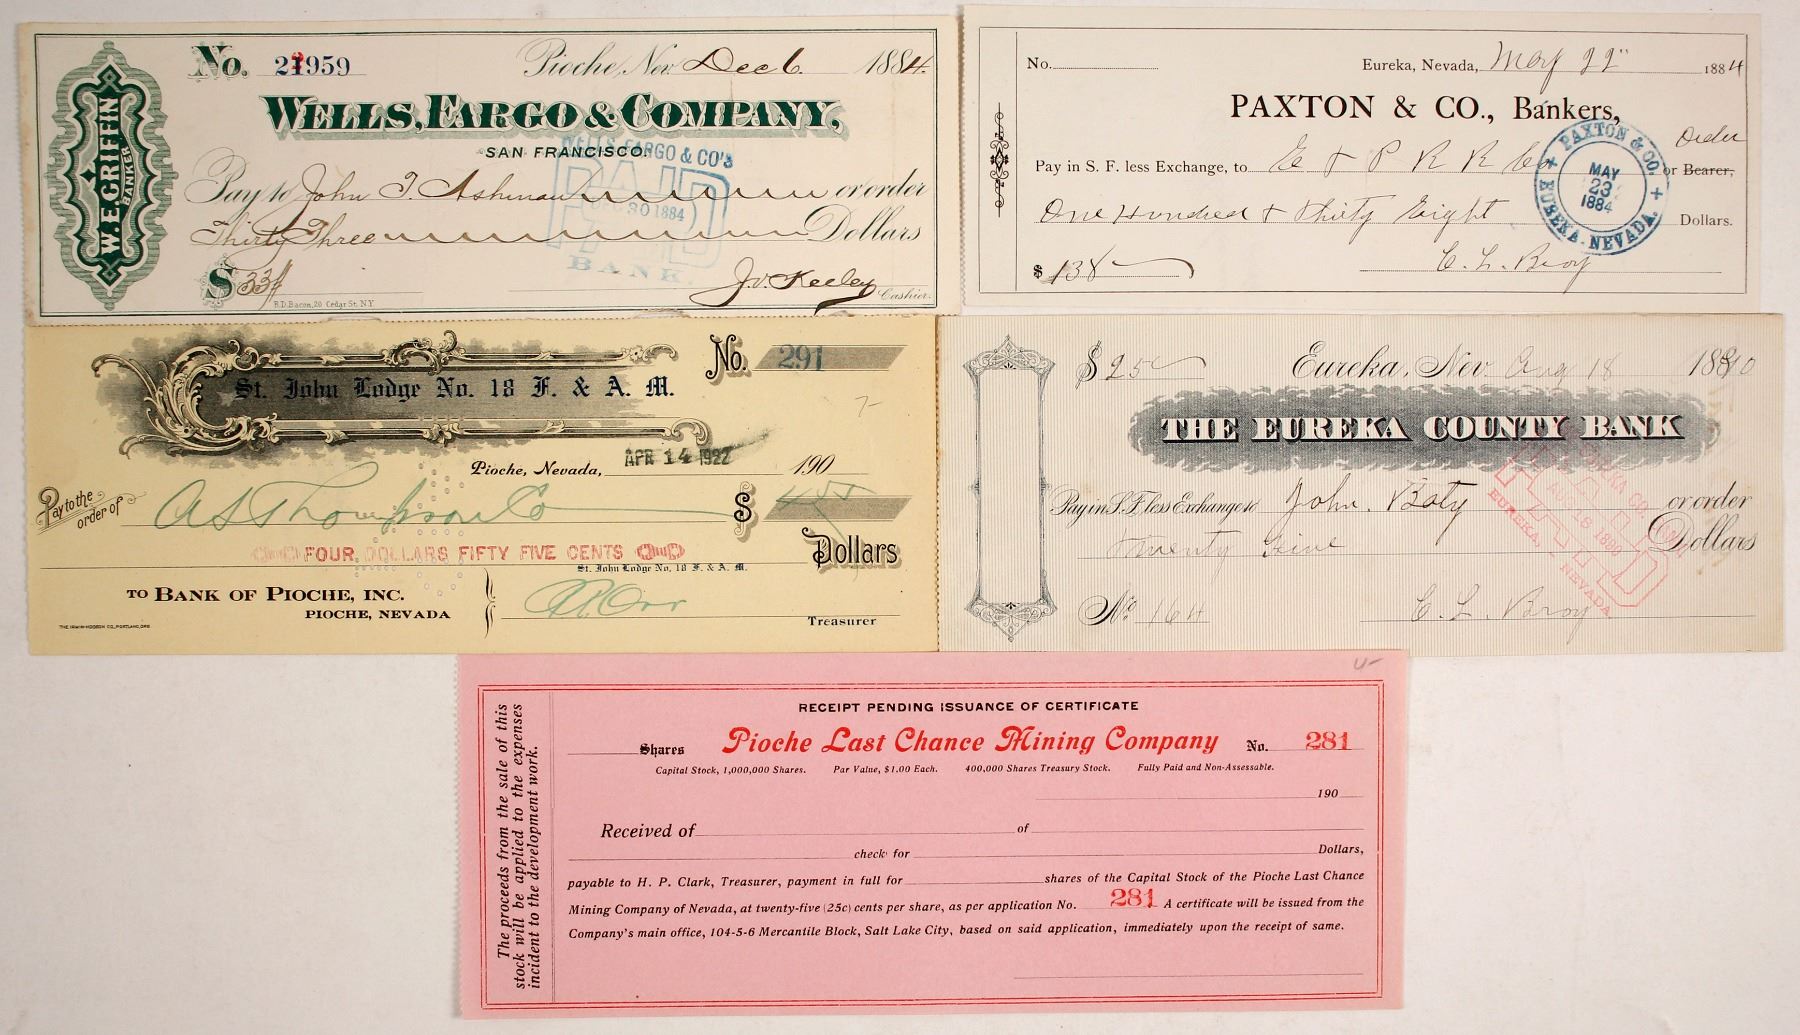 No. 21959
Pioche, Nev. Dec 6. 1884.
WELLS, FARGO & COMPANY,
SAN FRANCISCO.
Pay to John T. Ashman or order
Thirty Three Dollars
$ 33
Cashier.
R.D. Bacon, 20 Cedar St. N.Y.
W.E. GRIFFIN
BANKER
WELLS FARGO & CO'S
PAID
DEC 30 1884
BANK
No.
Eureka, Nevada, May 22" 1884
PAXTON & CO., Bankers,
Order
Pay in S. F. less Exchange, to E & P R R Co or Bearer,
One Hundred & Thirty Eight Dollars.
$ 138
PAXTON & CO.
MAY
23
1884
EUREKA, NEVADA.
St. John Lodge No. 18 F. & A. M.
No. 291
7-
Pioche, Nevada, APR 14 1922 190
Pay to the
order of A S Thompson Co $ 4.55
FOUR DOLLARS FIFTY FIVE CENTS Dollars
St. John Lodge No. 18 F. & A. M.
TO BANK OF PIOCHE, INC.
PIOCHE, NEVADA
Treasurer
THE IRWIN-HODSON CO., PORTLAND, ORE
$ 25
Eureka, Nev. Aug 18 1880
THE EUREKA COUNTY BANK
Pay in S.F. less Exchange to John. Baty or order
Twenty Five Dollars
No 164
EUREKA CO.
PAID
EUREKA, NEVADA
4-
RECEIPT PENDING ISSUANCE OF CERTIFICATE
Shares Pioche Last Chance Mining Company No. 281
Capital Stock, 1,000,000 Shares. Par Value, $1.00 Each. 400,000 Shares Treasury Stock. Fully Paid and Non-Assessable.
190
Received of of
check for Dollars,
payable to H. P. Clark, Treasurer, payment in full for shares of the Capital Stock of the Pioche Last Chance
Mining Company of Nevada, at twenty-five (25c) cents per share, as per application No. 281 A certificate will be issued from the
Company's main office, 104-5-6 Mercantile Block, Salt Lake City, based on said application, immediately upon the receipt of same.
The proceeds from the sale of this
stock will be applied to the expenses
incident to the development work.